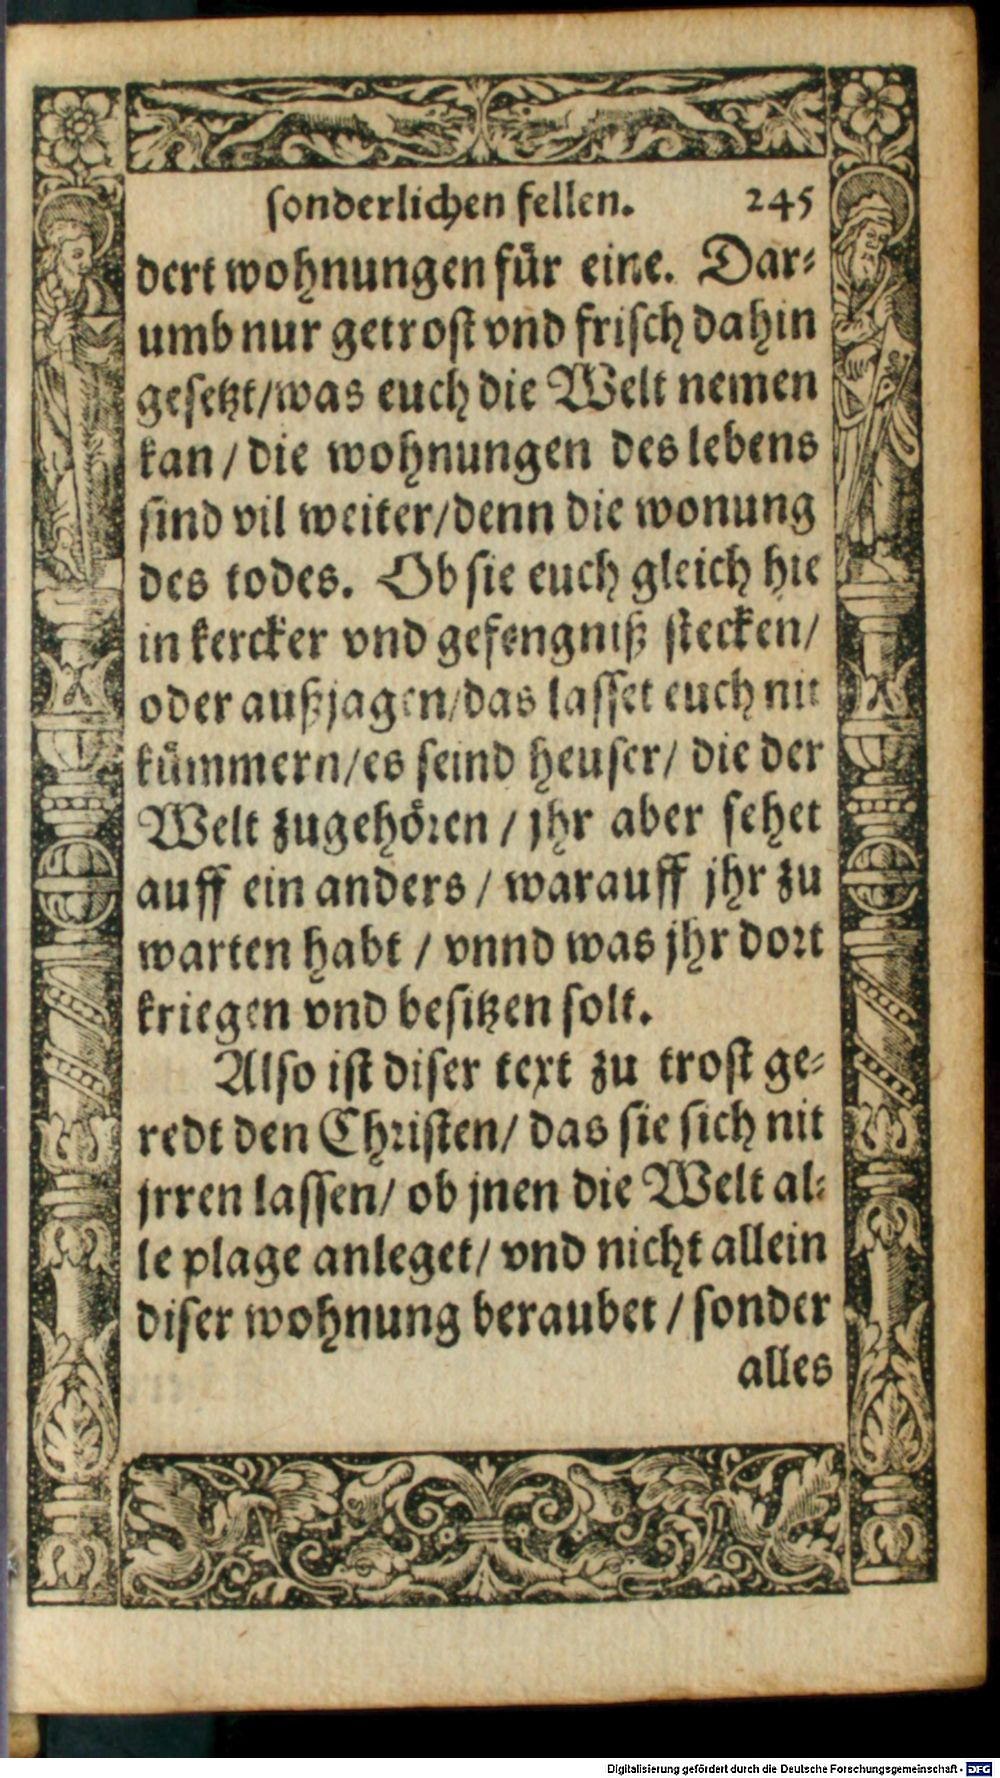 sonderlichen fellen. 245
dert wohnungen für eine. Dar⸗
umb nur getrost vnd frisch dahin
gesetzt/was euch die Welt nemen
kan/die wohnungen des lebens
sind vil weiter/denn die wonung
des todes. Ob sie euch gleich hie
in kercker vnd gefengniß stecken/
oder außjagen/das lasset euch nit
kümmern/es seind heuser/ die der
Welt zugehören / jhr aber sehet
auff ein anders / warauff jhr zu
warten habt / vnnd was jhr dort
kriegen vnd besitzen solt.
Also ist diser text zu trost ge⸗
redt den Christen/ das sie sich nit
jrren lassen/ ob jnen die Welt al⸗
le plage anleget/ vnd nicht allein
diser wohnung beraubet / sonder
alles
Digitalisierung gefördert durch die Deutsche Forschungsgemeinschaft - DFG